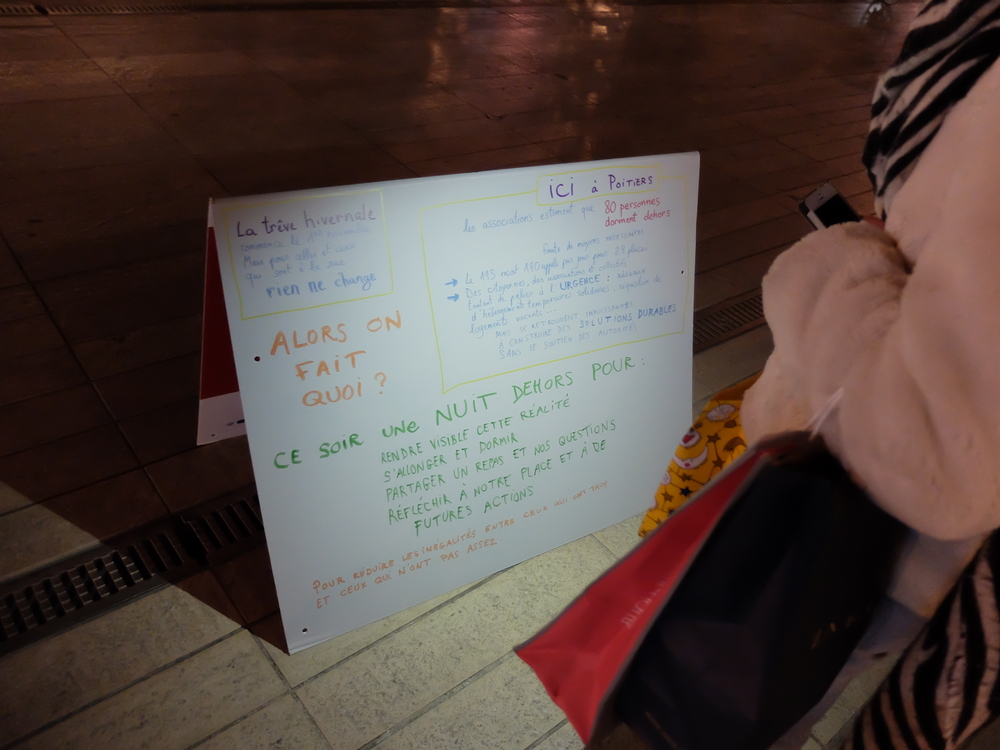 La trêve hivernale
commence le 1er novembre
Mais pour celles et ceux
qui sont à la rue
rien ne change
ici à POITIERS
les associations estiment que 80 personnes
dorment dehors
faute de moyens nécessaires
→ Le 115 reçoit 180 appels par jour pour 28 places
→ Des citoyennes, des associations et collectifs
tentent de palier à l'URGENCE : réseaux
d'hébergements temporaires solidaires, réquisition de
logements vacants...
MAIS SE RETROUVENT IMPUISSANTES
A CONSTRUIRE DES SOLUTIONS DURABLES
SANS LE SOUTIEN DES AUTORITÉS
ALORS ON
FAIT
QUOI ?
CE SOIR UNE NUIT DEHORS POUR :
RENDRE VISIBLE CETTE RÉALITÉ
S'ALLONGER ET DORMIR
PARTAGER UN REPAS ET NOS QUESTIONS
RÉFLÉCHIR À NOTRE PLACE ET À DE
FUTURES ACTIONS
POUR RÉDUIRE LES INÉGALITÉS ENTRE CEUX QUI ONT TROP
ET CEUX QUI N'ONT PAS ASSEZ